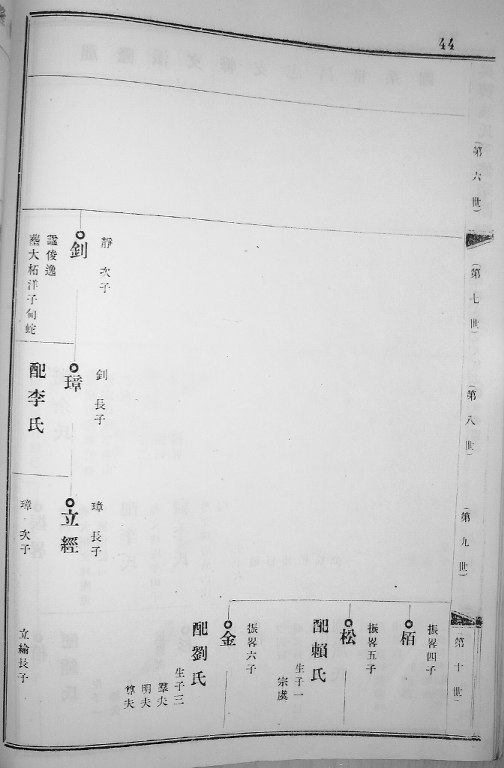 44
（第六世）
（第七世）
（第八世）
（第九世）
（第十世）
靜次子
釗
諡俊逸
葬大柘洋子甸蛇
釗長子
璋
配李氏
璋長子
立經
璋次子
振畧四子
栢
振畧五子
松
配賴氏
生子一
宗虞
振畧六子
金
配劉氏
生子三
羣夫
明夫
尊夫
立綸長子